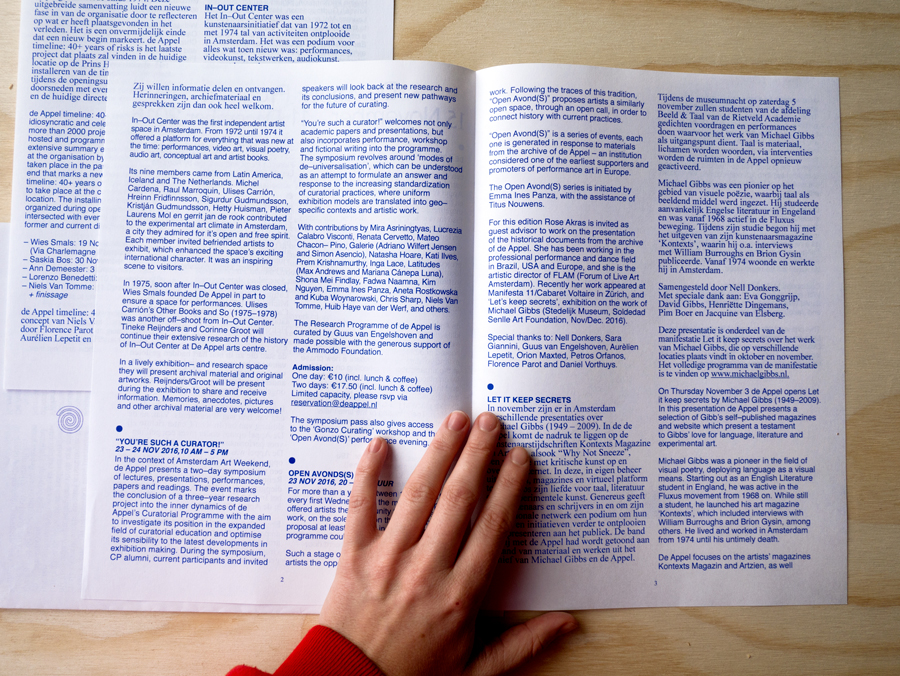 uitgebreide samenvatting luidt een nieuwe
fase in van de organisatie door te reflecteren
op wat er heeft plaatsgevonden in het
verleden. Het is een onvermijdelijk einde
dat een nieuw begin markeert. de Appel
timeline: 40+ years of risks is het laatste
project dat plaats zal vinden in de huidige
locatie op de Prins H
installeren van de tim
tijdens de openingsu
doorsneden met even
en de huidige directe
de Appel timeline: 40
idiosyncratic and cele
more than 2000 proje
hosted and programm
extensive summary e
at the organisation by
taken place in the pa
end that marks a new
timeline: 40+ years o
to take place at the c
location. The installin
organized during ope
intersected with ever
former and current di
– Wies Smals: 19 No
(Via Charlemagne
– Saskia Bos: 30 No
– Ann Demeester: 3
Lorenzo Benedetti
– Niels Van Tomme:
+ finissage
de Appel timeline: 4
concept van Niels V
door Florence Parot
Aurélien Lepetit en
IN–OUT CENTER
Het In–Out Center was een
kunstenaarsinitiatief dat van 1972 tot en
met 1974 tal van activiteiten ontplooide
in Amsterdam. Het was een podium voor
alles wat toen nieuw was: performances,
videokunst, tekstwerken, audiokunst,
Zij willen informatie delen en ontvangen.
Herinneringen, archiefmateriaal en
gesprekken zijn dan ook heel welkom.
In–Out Center was the first independent artist
space in Amsterdam. From 1972 until 1974 it
offered a platform for everything that was new at
the time: performances, video art, visual poetry,
audio art, conceptual art and artist books.
Its nine members came from Latin America,
Iceland and The Netherlands. Michel
Cardena, Raul Marroquin, Ulises Carrión,
Hreinn Fridfinnsson, Sigurdur Gudmundsson,
Kristján Gudmundsson, Hetty Huisman, Pieter
Laurens Mol en gerrit jan de rook contributed
to the experimental art climate in Amsterdam,
a city they admired for it's open and free spirit.
Each member invited befriended artists to
exhibit, which enhanced the space's exciting
international character. It was an inspiring
scene to visitors.
In 1975, soon after In–Out Center was closed,
Wies Smals founded De Appel in part to
ensure a space for performances. Ulises
Carrión's Other Books and So (1975–1978)
was another off-shoot from In–Out Center.
Tineke Reijnders and Corinne Groot will
continue their extensive research of the history
of In–Out Center at De Appel arts centre.
In a lively exhibition– and research space
they will present archival material and original
artworks. Reijnders/Groot will be present
during the exhibition to share and receive
information. Memories, anecdotes, pictures
and other archival material are very welcome!
"YOU'RE SUCH A CURATOR!"
23 – 24 NOV 2016,10 AM – 5 PM
In the context of Amsterdam Art Weekend,
de Appel presents a two–day symposium
of lectures, presentations, performances,
papers and readings. The event marks
the conclusion of a three–year research
project into the inner dynamics of de
Appel's Curatorial Programme with the aim
to investigate its position in the expanded
field of curatorial education and optimise
its sensibility to the latest developments in
exhibition making. During the symposium,
CP alumni, current participants and invited
2
speakers will look back at the research and
its conclusions, and present new pathways
for the future of curating.
"You're such a curator!" welcomes not only
academic papers and presentations, but
also incorporates performance, workshop
and fictional writing into the programme.
The symposium revolves around 'modes of
de–universalisation', which can be understood
as an attempt to formulate an answer and
response to the increasing standardization
of curatorial practices, where uniform
exhibition models are translated into geo–
specific contexts and artistic work.
With contributions by Mira Asriningtyas, Lucrezia
Calabro Visconti, Renata Cervetto, Mateo
Chacon– Pino, Galerie (Adriano Wilfert Jensen
and Simon Asencio), Natasha Hoare, Kati Ilves,
Prem Krishnamurthy, Inga Lace, Latitudes
(Max Andrews and Mariana Cánepa Luna),
Shona Mei Findlay, Fadwa Naamna, Kim
Nguyen, Emma Ines Panza, Aneta Rostkowska
and Kuba Woynarowski, Chris Sharp, Niels Van
Tomme, Huib Haye van der Werf, and others.
The Research Programme of de Appel is
curated by Guus van Engelshoven and
made possible with the generous support of
the Ammodo Foundation.
Admission:
One day: €10 (incl. lunch & coffee)
Two days: €17.50 (incl. lunch & coffee)
Limited capacity, please rsvp via
reservation@deappel.nl
The symposium pass also gives access
to the 'Gonzo Curating' workshop and th
'Open Avond(S)' performance evening.
OPEN AVONDS(S)
23 NOV 2016, 20– UUR
For more than a y between
every first Wednes the m
offered artists the unity
work, on the sole
proposal at least
programme cou
Such a stage o
artists the opp
work. Following the traces of this tradition,
"Open Avond(S)" proposes artists a similarly
open space, through an open call, in order to
connect history with current practices.
"Open Avond(S)" is a series of events, each
one is generated in response to materials
from the archive of de Appel – an institution
considered one of the earliest supporters and
promoters of performance art in Europe.
The Open Avond(S) series is initiated by
Emma Ines Panza, with the assistance of
Titus Nouwens.
For this edition Rose Akras is invited as
guest advisor to work on the presentation
of the historical documents from the archive
of de Appel. She has been working in the
professional performance and dance field
in Brazil, USA and Europe, and she is the
artistic director of FLAM (Forum of Live Art
Amsterdam). Recently her work appeared at
Manifesta 11/Cabaret Voltaire in Zürich, and
'Let's keep secrets', exhibition on the work of
Michael Gibbs (Stedelijk Museum, Soldedad
Senlle Art Foundation, Nov/Dec. 2016).
Special thanks to: Nell Donkers, Sara
Giannini, Guus van Engelshoven, Aurélien
Lepetit, Orion Maxted, Petros Orfanos,
Florence Parot and Daniel Vorthuys.
LET IT KEEP SECRETS
In november zijn er in Amsterdam
verschillende presentaties over
Michael Gibbs (1949 – 2009). In de de
pel komt de nadruk te liggen op de
nstenaarstijdschriften Kontexts Magazine
alsook "Why Not Sneeze",
met kritische kunst op en
ternet. In deze, in eigen beheer
magazines en virtueel platform
zijn liefde voor taal, literatuur
rimentele kunst. Genereus geeft
aars en schrijvers in en om zijn
ale netwerk een podium om hun
initiatieven verder te ontplooien
senteren aan het publiek. De band
de Appel had wordt getoond aan
van materiaal en werken uit het
van Michael Gibbs en de Appel.
Tijdens de museumnacht op zaterdag 5
november zullen studenten van de afdeling
Beeld & Taal van de Rietveld Academie
gedichten voordragen en performances
doen waarvoor het werk van Michael Gibbs
als uitgangspunt dient. Taal is materiaal,
lichamen worden woorden, via interventies
worden de ruimten in de Appel opnieuw
geactiveerd.
Michael Gibbs was een pionier op het
gebied van visuele poëzie, waarbij taal als
beeldend middel werd ingezet. Hij studeerde
aanvankelijk Engelse literatuur in Engeland
en was vanaf 1968 actief in de Fluxus
beweging. Tijdens zijn studie begon hij met
het uitgeven van zijn kunstenaarsmagazine
'Kontexts', waarin hij o.a. interviews
met William Burroughs en Brion Gysin
publiceerde. Vanaf 1974 woonde en werkte
hij in Amsterdam.
Samengesteld door Nell Donkers.
Met speciale dank aan: Eva Gonggrijp,
David Gibbs, Henriëtte Dingemans,
Pim Boer en Jacquine van Elsberg.
Deze presentatie is onderdeel van de
manifestatie Let it keep secrets over het werk
van Michael Gibbs, die op verschillende
locaties plaats vindt in oktober en november.
Het volledige programma van de manifestatie
is te vinden op www.michaelgibbs.nl.
On Thursday November 3 de Appel opens Let
it keep secrets by Michael Gibbs (1949–2009).
In this presentation de Appel presents a
selection of Gibb's self–published magazines
and website which present a testament
to Gibbs' love for language, literature and
experimental art.
Michael Gibbs was a pioneer in the field of
visual poetry, deploying language as a visual
means. Starting out as an English literature
student in England, he was active in the
Fluxus movement from 1968 on. While still
a student, he launched his art magazine
'Kontexts', which included interviews with
William Burroughs and Brion Gysin, among
others. He lived and worked in Amsterdam
from 1974 until his untimely death.
De Appel focuses on the artists' magazines
Kontexts Magazin and Artzien, as well
3